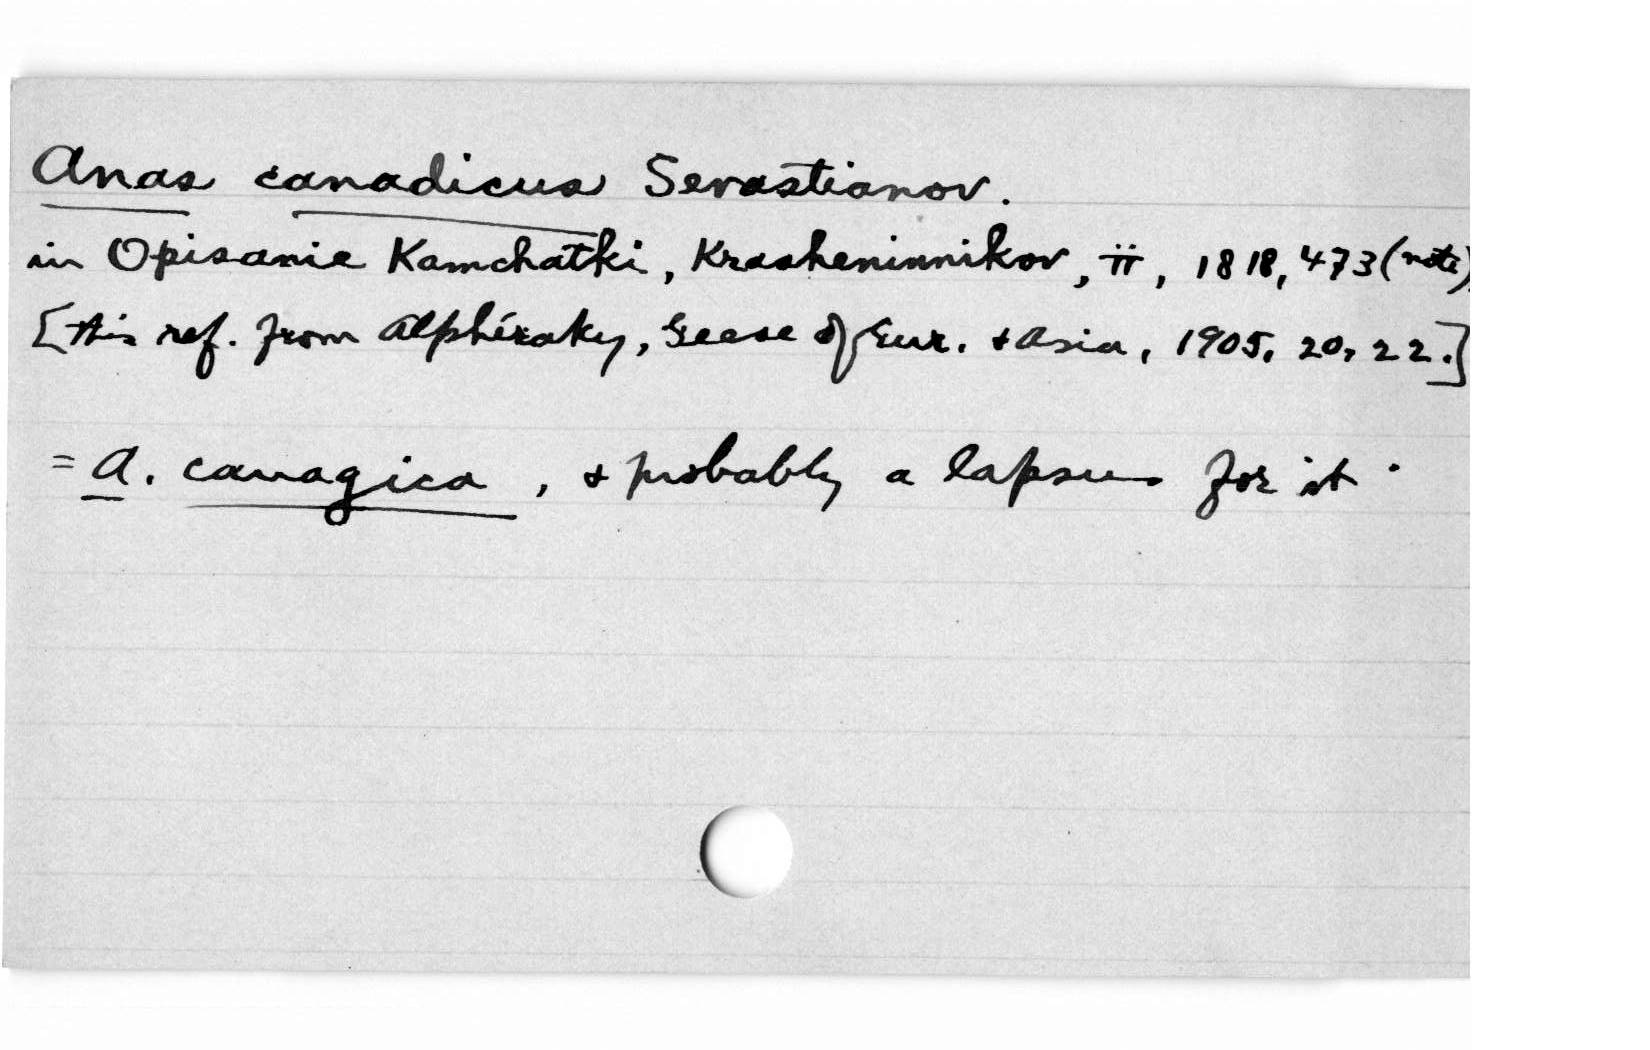 Anas canadicus Sevastianov.
in Opisanie Kamchatki, Krasheninnikov, ii, 1818, 473 (note).
[this ref. from Alphéraky, Geese of Eur. & Asia, 1905, 20, 22.]
= A. canagica, & probably a lapsus for it.